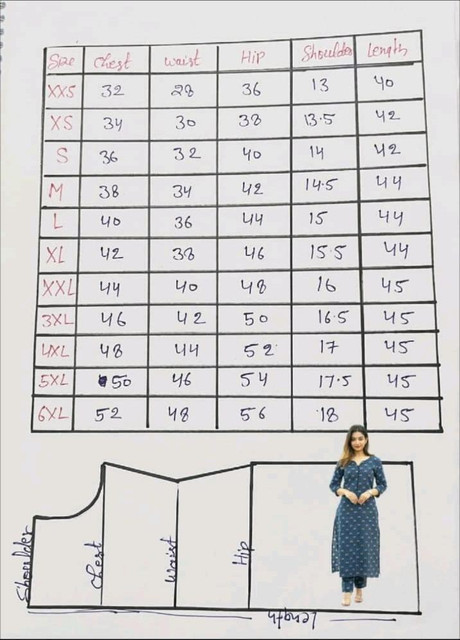 Size Chest Waist Hip Shoulder Length
XXS 32 28 36 13 40
XS 34 30 38 13.5 42
S 36 32 40 14 42
M 38 34 42 14.5 44
L 40 36 44 15 44
XL 42 38 46 15.5 44
XXL 44 40 48 16 45
3XL 46 42 50 16.5 45
4XL 48 44 52 17 45
5XL 50 46 54 17.5 45
6XL 52 48 56 18 45
Shoulder
Chest
Waist
Hip
Length